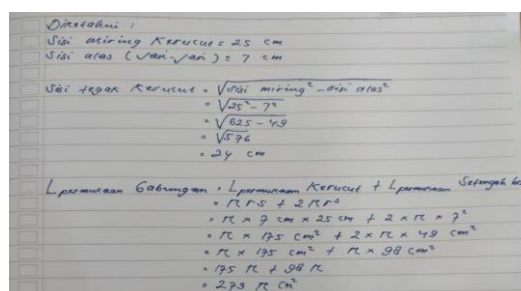 Diketahui :
Sisi miring Kerucut = 25 cm
Sisi alas (Jari-jari) = 7 cm
Sisi tegak Kerucut = √sisi miring² - sisi alas²
= √25² - 7²
= √625 - 49
= √576
= 24 cm
L permukaan Gabungan = L permukaan Kerucut + L permukaan Setengah bo
= π r s + 2 π r²
= π × 7 cm × 25 cm + 2 × π × 7²
= π × 175 cm² + 2 × π × 49 cm²
= π × 175 cm² + π × 98 cm²
= 175 π + 98 π
= 273 π cm²